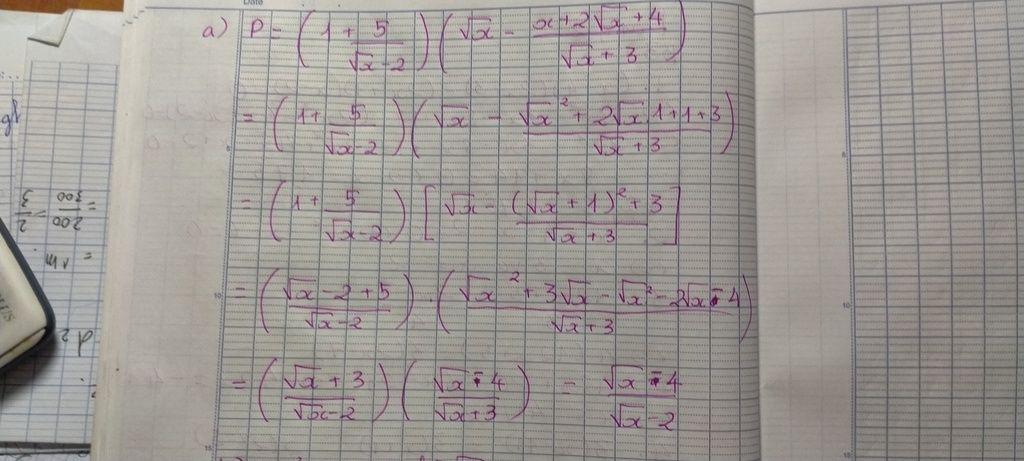 Date
a) P = (1 + 5/(√x - 2)) (√x - (x + 2√x + 4)/(√x + 3))
= (1 + 5/(√x - 2)) (√x - (√x² + 2√x.1 + 1 + 3)/(√x + 3))
= (1 + 5/(√x - 2)) [√x - ((√x + 1)² + 3)/(√x + 3)]
= ((√x - 2 + 5)/(√x - 2)) . ((√x² + 3√x - √x² - 2√x - 4)/(√x + 3))
= ((√x + 3)/(√x - 2)) ((√x - 4)/(√x + 3)) = (√x - 4)/(√x - 2)
= 200/300 = 2/3